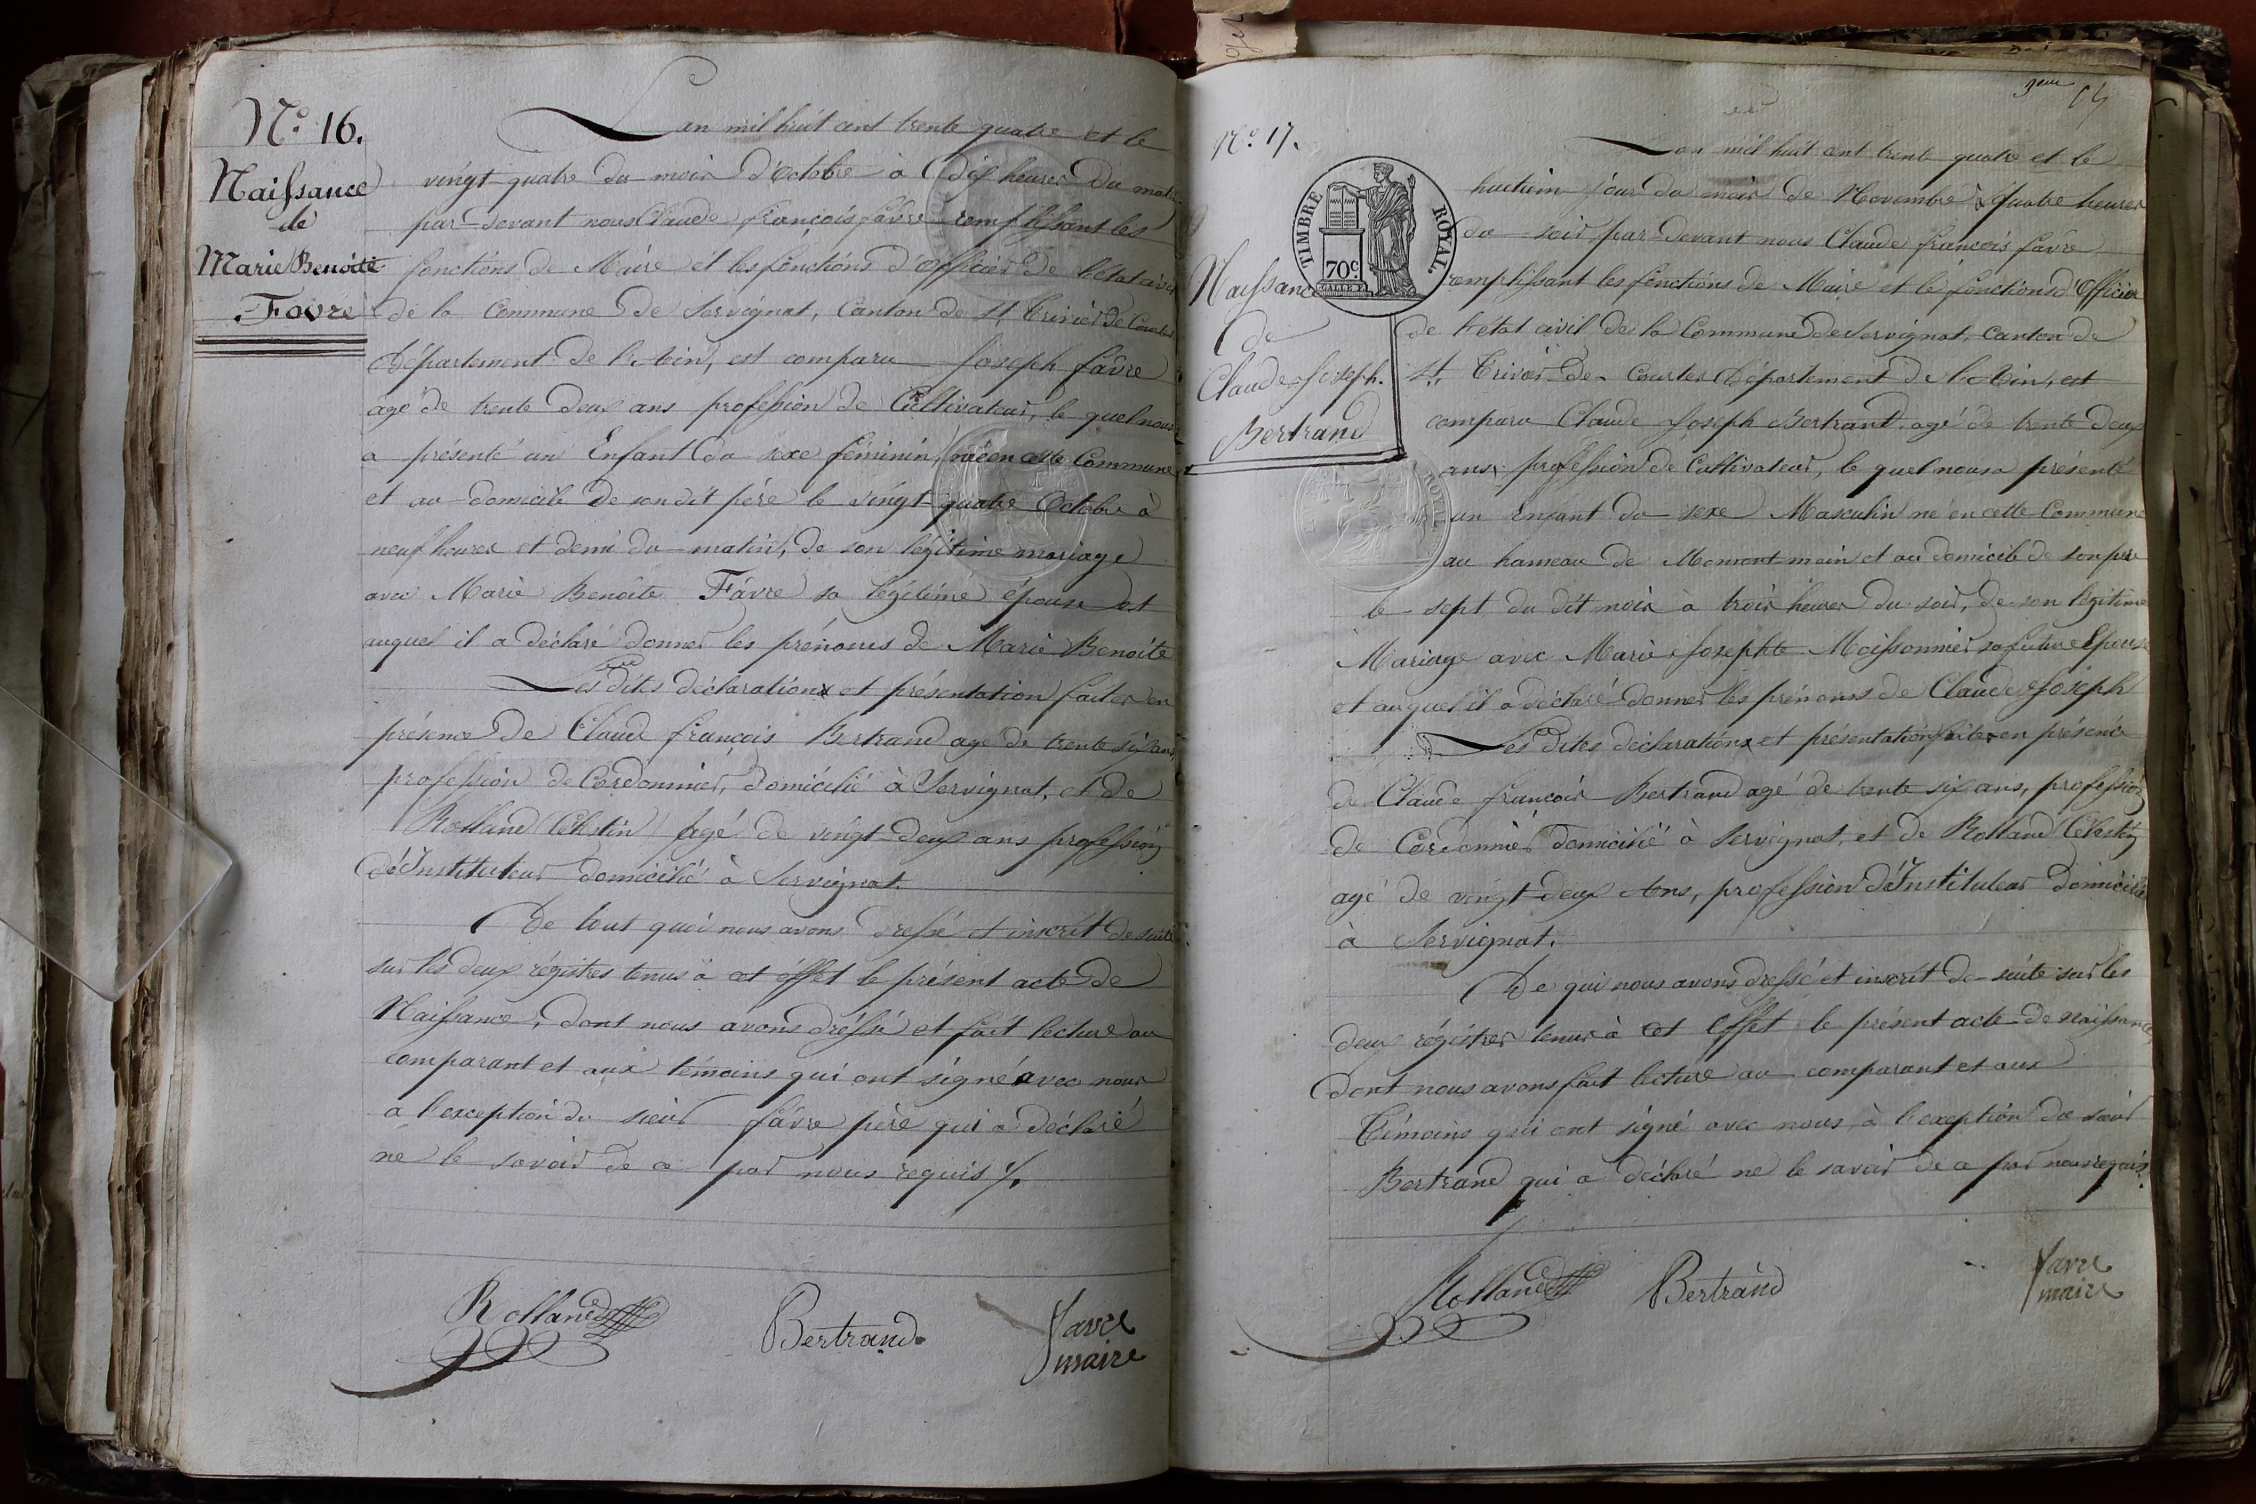 N.° 16.
Naissance
de
Marie Benoite
Favre
L'an mil huit cent trente quatre et le
vingt quatre du mois d'Octobre à Dix heures du matin
par devant nous Claude françois favre remplissant les
fonctions de Maire et les fonctions d'Officier de l'état civil
de la Commune de Servignat, Canton de St. Trivier de Courtes
Département de l'Ain, est comparu Joseph favre
agé de trente deux ans profession de Cultivateur, le quel nous
a présenté un Enfant du sexe féminin, née en cette Commune
et au domicile de son dit père le vingt quatre Octobre à
neuf heures et demi du matin, de son légitime mariage
avec Marie Benoite Favre sa légitime épouse et
auquel il a déclaré donner les prénoms de Marie Benoite
Les dites déclarations et présentation faites en
présence de Claude françois Bertrand agé de trente six ans,
profession de Cordonnier, domicilié à Servignat, et de
Rolland Célestin agé de vingt deux ans profession
d'Instituteur domicilié à Servignat.
De tout quoi nous avons dressé et inscrit de suite
sur les deux régistres tenus à cet éffet le présent acte de
Naissance, dont nous avons dréssé et fait lecture au
comparant et aux témoins qui ont signé avec nous
a l'exception du sieur favre père qui a déclaré
ne le savoir de ce par nous requis /.
Rolland
Bertrand
favre
maire
9eme
N.° 17.
TIMBRE ROYAL.
70c.
Naissance
de
Claude Joseph.
Bertrand
L'an mil huit cent trente quatre et le
huitiem jour du mois de Novembre à quatre heures
du soir, par devant nous Claude françois favre
remplissant les fonctions de Maire et les fonctions d'Officier
de l'état civil de la Commune de Servignat, Canton de
St. Trivier de Courtes Département de l'Ain, est
comparu Claude Joseph Bertrand agé de trente deux
ans, profession de Cultivateur, le quel nous a présenté
ROYAL
un Enfant du sexe Masculin né en cette Commune
au hameau de et au domicile de son père
le sept du dit mois à trois heures du soir, de son légitime
Mariage avec Marie Josephte Moissonnier sa future Epouse
et auquel il a déclaré donner les prénoms de Claude Joseph
Les dites déclarations et présentation faites en présence
de Claude françois Bertrand agé de trente six ans, profession
de Cordonnier domicilié à Servignat, et de Rolland Célestin
agé de vingt deux Ans, profession d'Instituteur domicilié
à Servignat.
De qui nous avons dressé et inscrit de suite sur les
deux régistres tenus à cet Effet le présent acte de naissance
dont nous avons fait lecture au comparant et aux
Témoins qui ont signé avec nous, à l'exception du sieur
Bertrand qui a déclaré ne le savoir de ce par nous requis.
Rolland
Bertrand
favre
maire